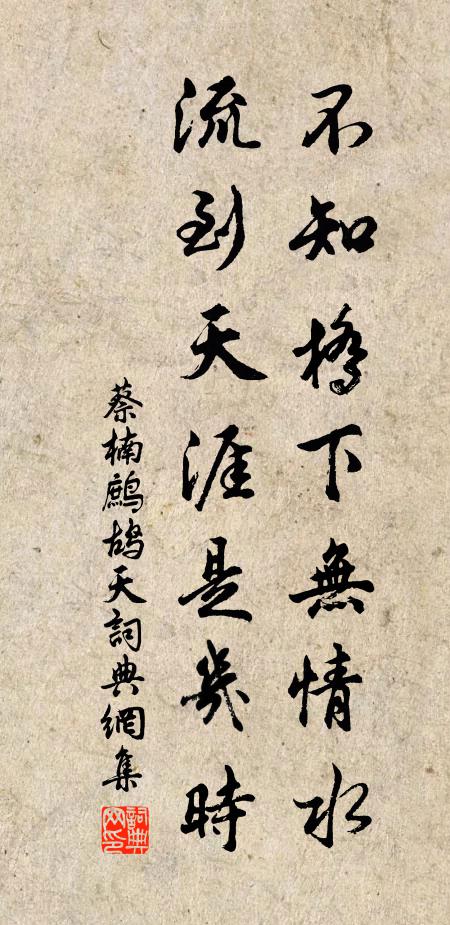 不知橋下無情水
流到天涯是幾時
蔡楠鷓鴣天詞典網集
詞典網印